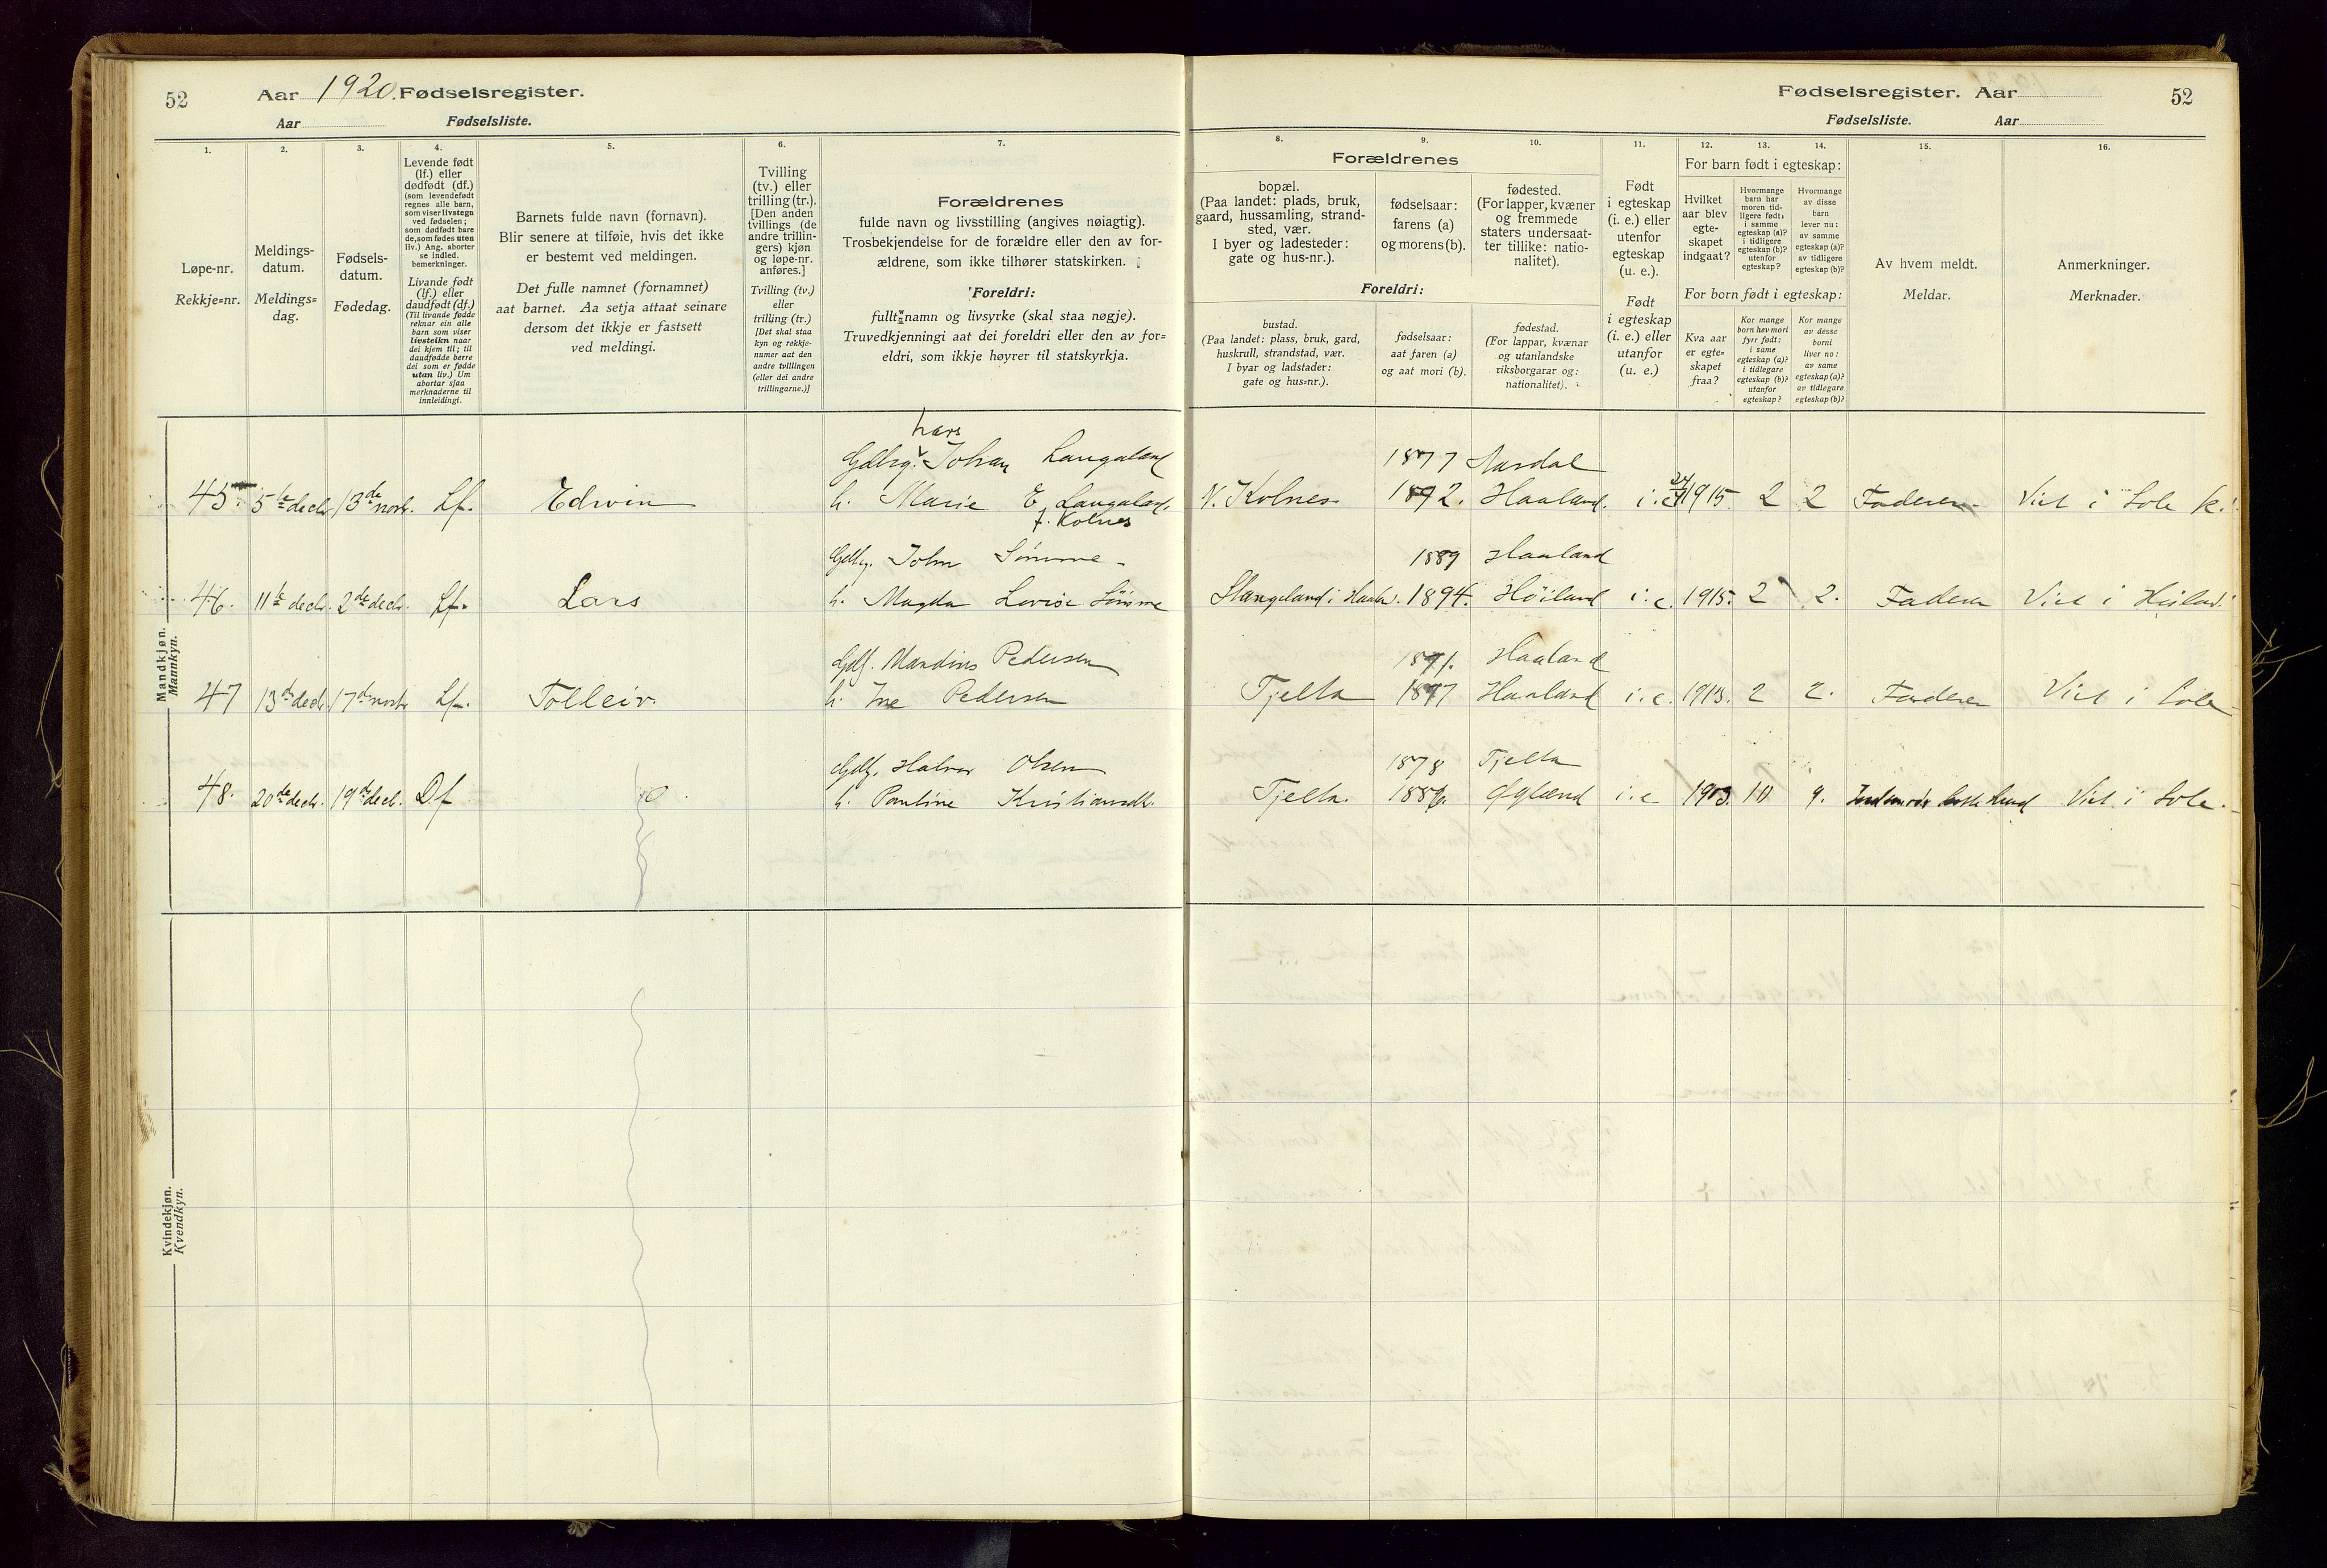 52
Aar 1920. Fødselsregister.
Aar Fødselsliste.
1.
2.
3.
4.
5.
6.
7.
Løpe-nr.
Rekkje=nr.
Meldings-
datum.
Meldings=
dag.
Fødsels-
datum.
Fødedag.
Levende født
(lf.) eller
dødfødt (df.)
(som levendefødt
regnes alle barn,
som viser livstegn
ved fødselen;
som dødfødt bare
de, som fødes uten
liv.) Ang. aborter
se indled.
bemerkninger.
Livande født
(lf.) eller
daudfødt (df.)
(Til livande fødde
reknar ein alle
barn som viser
livsteikn naar
dei kjem til; til
daudfødde berre
dei som er fødde
utan liv.) Um
abortar sjaa
merknaderne til
innleidingi.
Barnets fulde navn (fornavn).
Blir senere at tilføie, hvis det ikke
er bestemt ved meldingen.
Det fulle namnet (fornamnet)
aat barnet. Aa setja attaat seinare
dersom det ikkje er fastsett
ved meldingi.
Tvilling
(tv.) eller
trilling (tr.).
[Den anden
tvillings (de
andre trillin-
gers) kjøn
og løpe-nr.
anføres.]
Tvilling (tv.)
eller
trilling (tr.)
[Det skal staa
kyn og rekkje-
numer aat den
andre tvillingen
(eller dei andre
trillingarne.)]
Forældrenes
fulde navn og livsstilling (angives nøiagtig).
Trosbekjendelse for de forældre eller den av for-
ældrene, som ikke tilhører statskirken.
Foreldri:
fullt namn og livsyrke (skal staa nøgje).
Truvedkjenningi aat dei foreldri eller den av for=
eldri, som ikkje høyrer til statskyrkja.
Mandkjøn.
Mannkyn.
Lars
Gdbrg. Johan Langaland
45. 5te decbr. 13de novbr. Lf. Edwin h. Marie E. Langaland.
f. Kolnes
Gdbg. John Sömme
46. 11te decbr. 2de decbr. Lf. Lars h. Magda Lovise Sömme
Gdf. Mandius Pedersen
47 13de decbr. 17de novbr. Lf. Tolleiv. h. Ine Pedersen
Gdbg. Halvor Olsen
48. 20de decbr. 19de decbr. Df h. Pauline Kristiansdtr.
Kvindekjøn.
Kvendkyn.
Fødselsregister. Aar 52
Fødselsliste. Aar
8.
9.
10.
11.
12.
13.
14.
15.
16.
Forældrenes
bopæl.
(Paa landet: plads, bruk,
gaard, hussamling, strand-
sted, vær.
I byer og ladesteder:
gate og hus-nr.).
fødselsaar:
farens (a)
og morens (b).
fødested.
(For lapper, kvæner
og fremmede
staters undersaat-
ter tillike: natio-
nalitet).
Foreldri:
bustad.
(Paa landet: plass, bruk, gard,
huskrull, strandstad, vær.
I byar og ladstader:
gate og hus=nr.).
fødselsaar:
aat faren (a)
og aat mori (b).
fødestad.
(For lappar, kvænar
og utanlandske
riksborgarar og:
nationalitet).
Født
i egteskap
(i. e.) eller
utenfor
egteskap
(u. e.).
Født
i egteskap
(i. e.) eller
utanfor
(u. e.)
For barn født i egteskap:
Hvilket
aar blev
egte-
skapet
indgaat?
Hvormange
barn har
moren tid-
ligere født:
i samme
egteskap (a)?
i tidligere
egteskap (b)?
utenfor
egteskap?
Hvormange
av disse
barn
lever nu:
av samme
egteskap (a)?
av tidligere
egteskap (b)?
For born født i egteskap:
Kva aar
er egte=
skapet
fraa?
Kor mange
born hev mori
fyrr født:
i same
egteskap (a)?
i tidlegare
egteskap (b)?
utanfor
egteskap?
Kor mange
av desse
borni
liver no:
av same
egteskap (a)?
av tidlegare
egteskap (b)?
Av hvem meldt.
Meldar.
Anmerkninger.
Merknader.
1877 Aardal
N. Kolnes 1892. Haaland. i. e. 1915. 2 2 Faderen Viet i Sole k.
1889 Haaland
Stangeland i Haal. 1894. Höiland i. e. 1915. 2 2. Faderen Viet i Höiland.
1891. Haaland
Tjelta 1897 Haaland i. e. 1918. 2 2. Faderen Viet i Sole
1878 Tjelta
Tjelta. 1886. i. e 1903. 10 9. Viet i Sole.